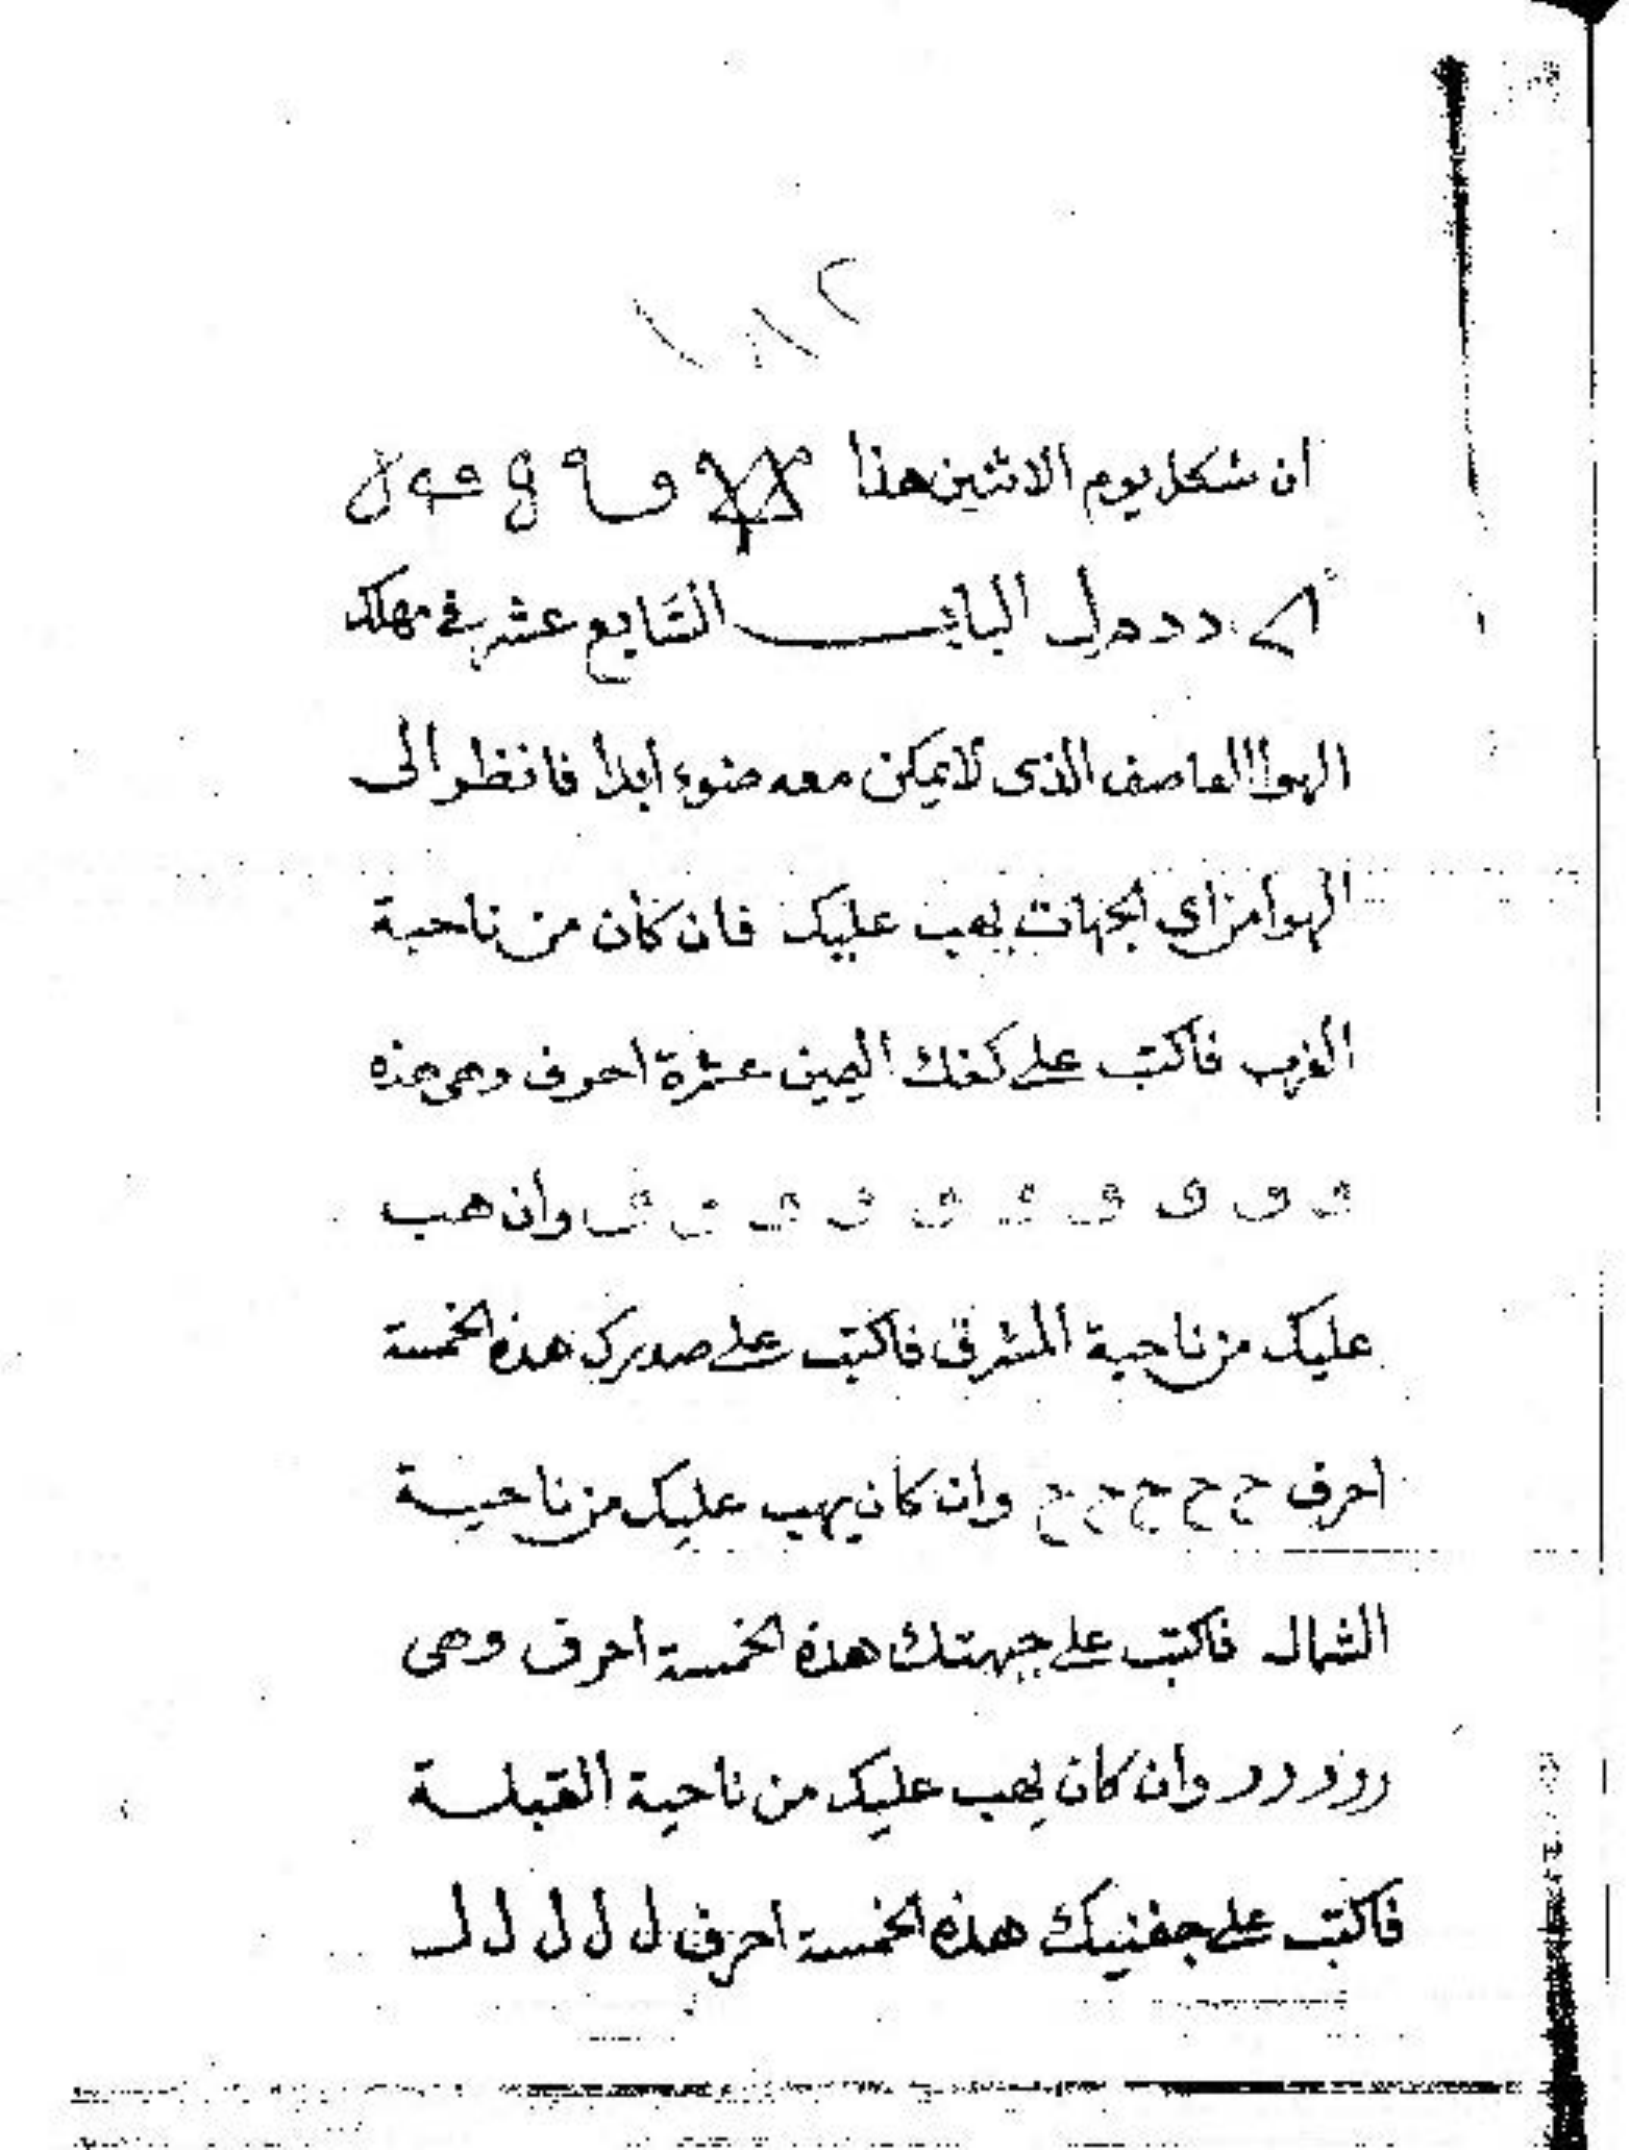 ان شكل يوم الاثنين هذا
الباب السابع عشر في مهلكـ
الهوا العاصف الذى لا يمكن معه ضوء ابدا فانظر الى
الهوا من اى الجهات يهب عليك فان كان من ناحية
الغرب فاكتب على كفك اليمين عشرة احرف وهى هذه
ق ق ق ق ق ق ق ق ق ق وأن هب
عليك من ناحية المشرق فاكتب على صدرك هذه الخمسة
احرف ح ح ح ح ح وان كان يهب عليك من ناحيـة
الشمال فاكتب على جبهتك هذه الخمسة احرف وهى
ر ر ر ر ر وان كان يهب عليك من ناحية القبلـة
فاكتب على جفنيك هذه الخمسة احرف ل ل ل ل ل